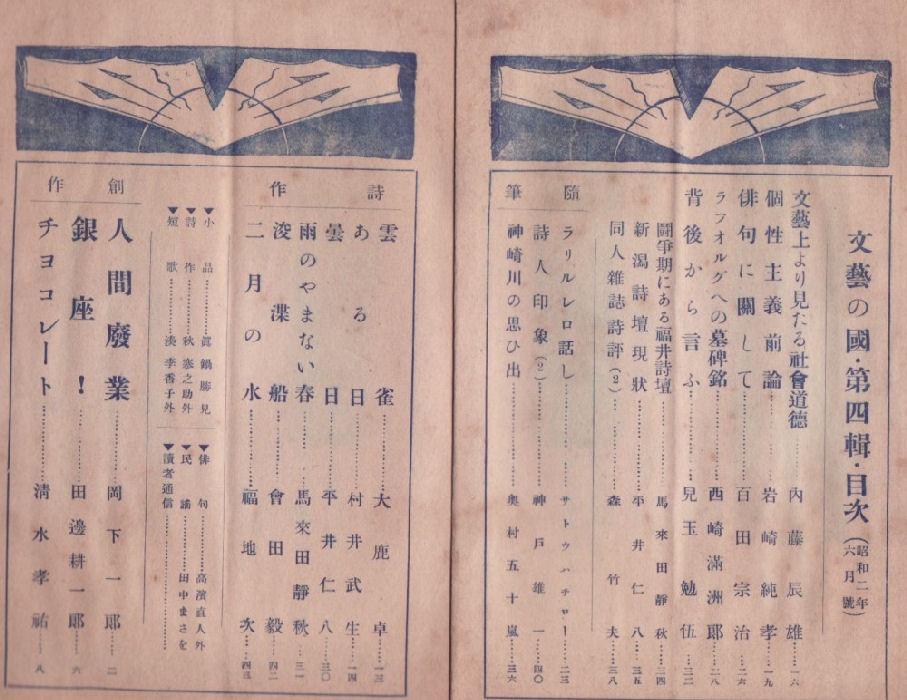 文藝の國・第四輯・目次（昭和二年六月號）
文藝上より見たる社會道德……內藤辰雄…一六
個性主義前論……岩崎純孝…一九
俳句に關して……百田宗治…二六
ラフオルグへの墓碑銘……西崎滿洲郎…二八
背後から言ふ……兒玉勉伍…三二
鬪爭期にある福井詩壇……馬來田靜秋…二四
新潟詩壇現狀……平井仁八…三五
同人雜誌詩評（2）……森竹夫…三八
隨筆
ラリルレロ話し……サトウハチロー…二三
詩人印象（2）……神戶雄一…四〇
神崎川の思ひ出……奧村五十嵐…三六
詩作
雲雀……大鹿卓…一三
ある日……村井武生…一四
曇日……平井仁八…三〇
雨のやまない春……馬來田靜秋…三一
浚渫船……會田毅…四二
二月の水……福地次…四三
▼小品……眞鍋勝見
▼詩作……秋寒之助外
▼短歌……湊季香子外
▼俳句……高濱直人外
▼民謠……田中まさを
▼讀者通信……
創作
人間廢業……岡下一郎…二
銀座！……田邊耕一郎…六
チヨコレート……淸水孝祐…八